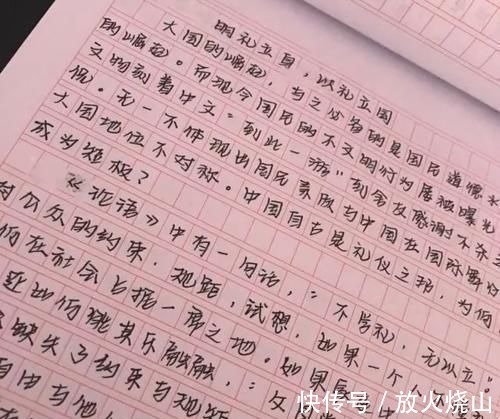 明礼立身,以礼立国
大国的崛起,与之必备的是国民道德水
的崛起。而现今国民的不文明行为屡被曝光
文物刻着中文“到此一游”刻舍友感谢不杀
低。无一不体现出国民素质与中国在国际舞
大国地位不对称。中国自古是礼仪之邦,为何
成为短板?
《论语》中有一句话,:不学礼,无以立。
对公众的约束,规距,试想,如果一个人
何在社会占据一席之地。如果
此何谈其乐融融,
缺失了约束与规距
自由与他
快传号/放火烧山